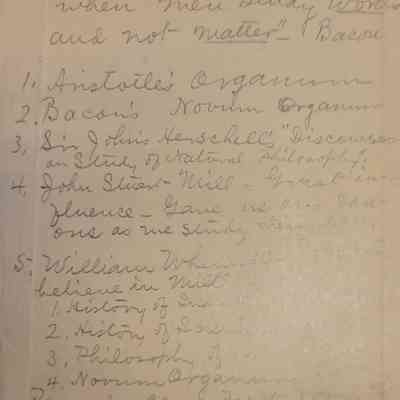 when men study Words
and not matter" Bacon
1. Aristotle's Organum
2. Bacon's Novum Organum
3. Sir John's Herschell's "Discourses
on Study of Natural Philosophy.
4. John Stuart Mill - Great in-
fluence - Gave us our
ons as we study
5. William
believe in Mill
1. History of
2. History of
3. Philosophy of
4. Novum Organum